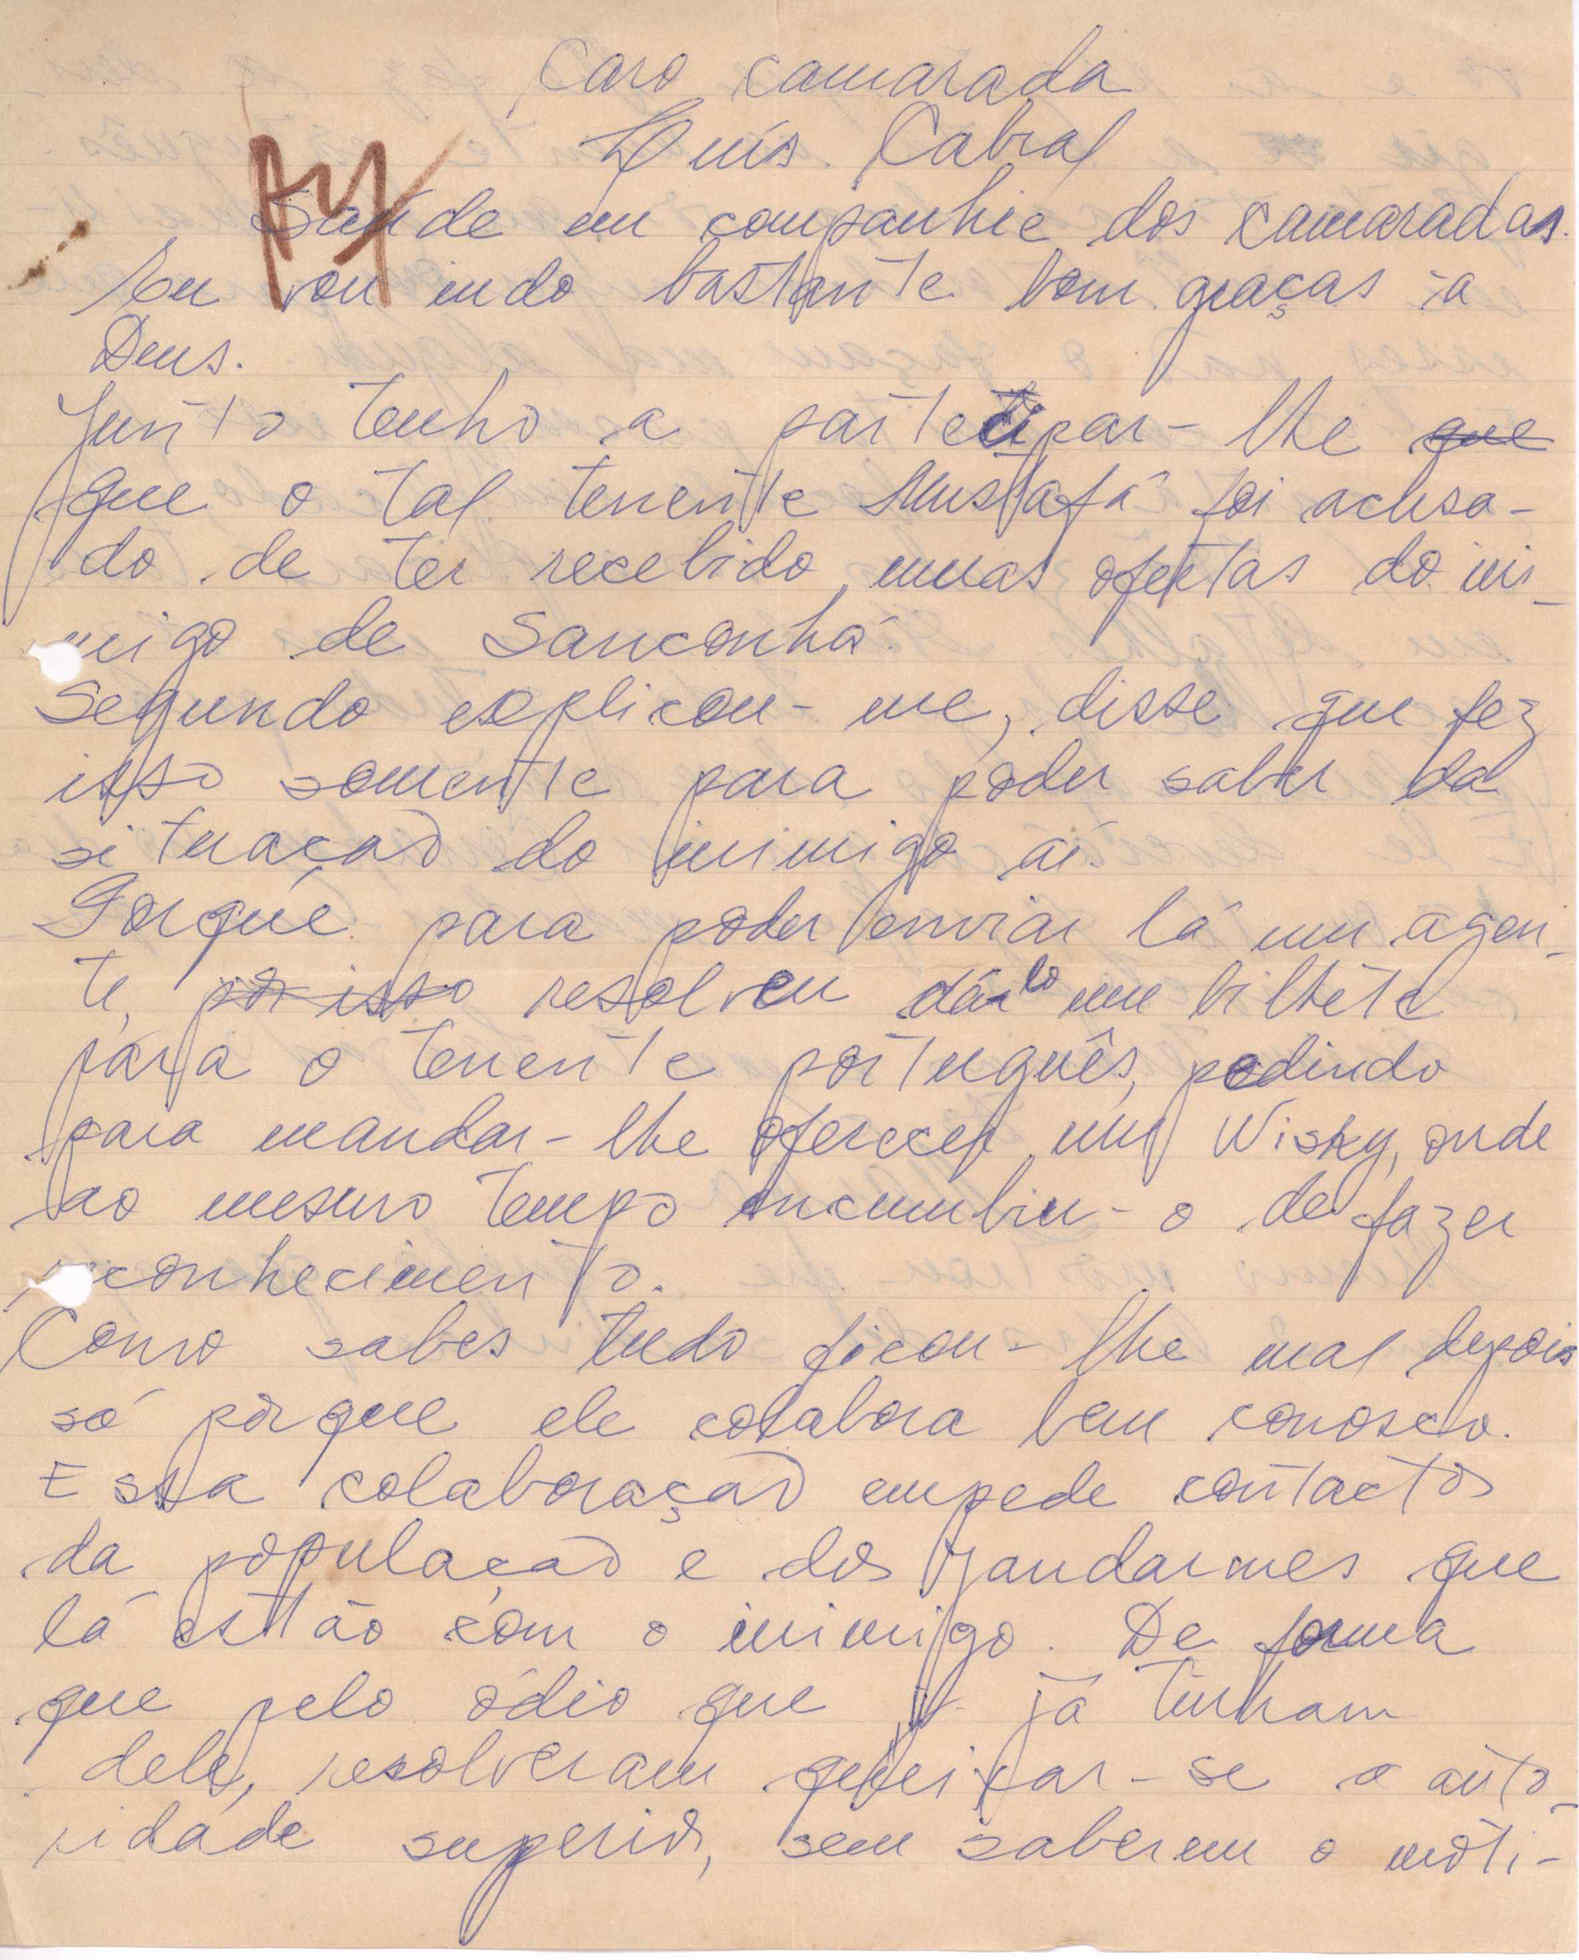 Caro camarada
Luís Cabral
Saúde em companhie dos camaradas.
Eu vou indo bastante bom graças a
Deus.
Junto tenho a partecipar-lhe que
que o tal tenente Mustafá foi acusa-
do de ter recebido umas ofertas do ini-
migo de Sanconhá.
Segundo explicou-me, disse que fez
isso somente para poder saber da
situação do inimigo aí.
Porquê para poder enviar lá um agen-
te, por isso resolveu dá-lo um bilhete
para o tenente português, pedindo
para mandar-lhe oferecer um Wisky, onde
ao mesmo tempo encumbiu-o de fazer
reconhecimento.
Como sabes tudo ficou-lhe mal depois
só porque ele colabora bem conosco.
Essa colaboração empede contactos
da população e dos gandarmes que
lá estão com o inimigo. De forma
que pelo ódio que já tinham
dele, resolveram queixar-se a auto-
ridade superior, sem saberem o moti-